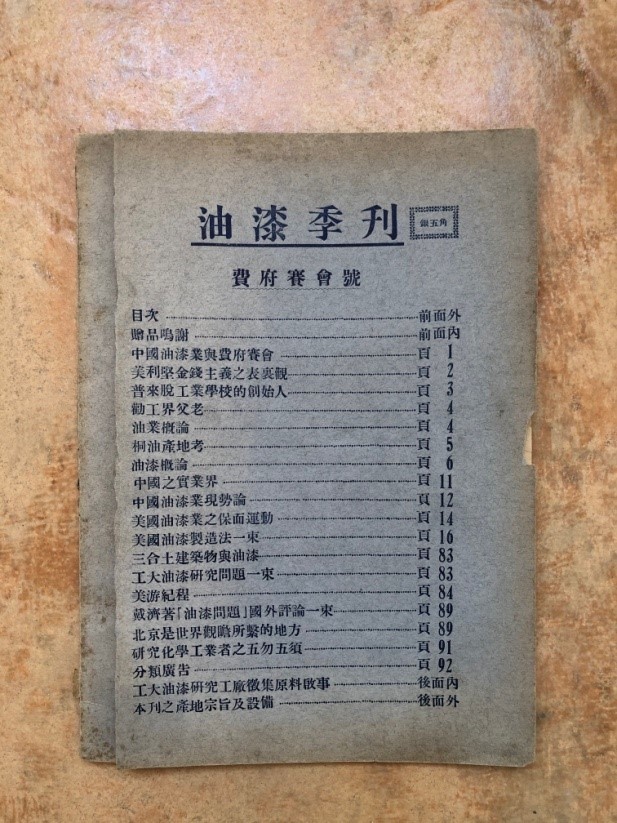 油漆季刊 銀五角
費府賽會號
目次 前面外
贈品鳴謝 前面內
中國油漆業與費府賽會 頁 1
美利堅金錢主義之表裏觀 頁 2
普來脫工業學校的創始人 頁 3
勸工界父老 頁 4
油業概論 頁 4
桐油產地考 頁 5
油漆概論 頁 6
中國之實業界 頁 11
中國油漆業現勢論 頁 12
美國油漆業之保面運動 頁 14
美國油漆製造法一束 頁 16
三合土建築物與油漆 頁 83
工大油漆研究問題一束 頁 83
美游紀程 頁 84
戴濟著「油漆問題」國外評論一束 頁 89
北京是世界觀瞻所繫的地方 頁 89
研究化學工業者之五勿五須 頁 91
分類廣告 頁 92
工大油漆研究工廠徵集原料啟事 後面內
本刊之產地宗旨及設備 後面外